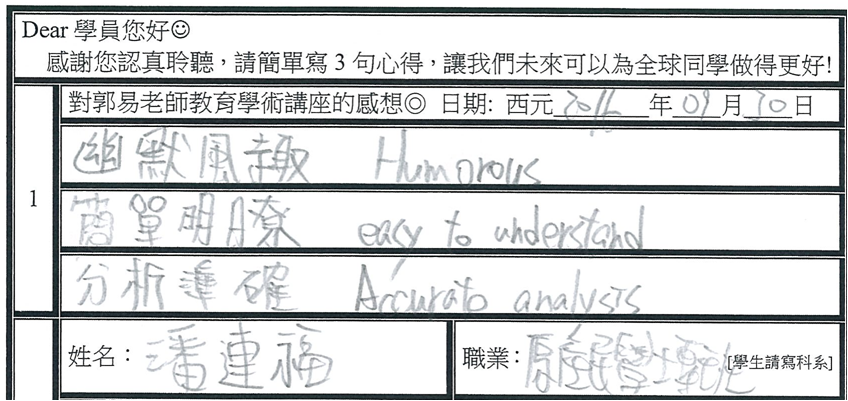 Dear 學員您好☺
感謝您認真聆聽，請簡單寫 3 句心得，讓我們未來可以為全球同學做得更好!
對郭易老師教育學術講座的感想◎ 日期: 西元 2016 年 09 月 30 日
1
幽默風趣 Humorous
簡單明瞭 easy to understand
分析準確 Accurate analysis
姓名：潘連福
職業： [學生請寫科系]